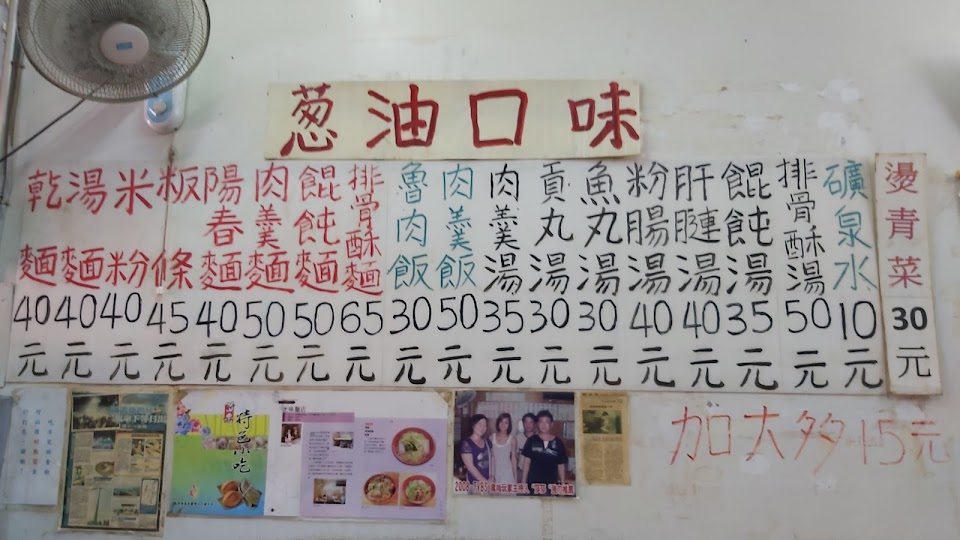 葱油口味
乾麵40元
湯麵40元
米粉40元
粄條45元
陽春麵40元
肉羹麵50元
餛飩麵50元
排骨酥麵65元
魯肉飯30元
肉羹飯50元
肉羹湯35元
貢丸湯30元
魚丸湯30元
粉腸湯40元
肝腱湯40元
餛飩湯35元
排骨酥湯50元
礦泉水10元
燙青菜30元
加大多15元
特色小吃